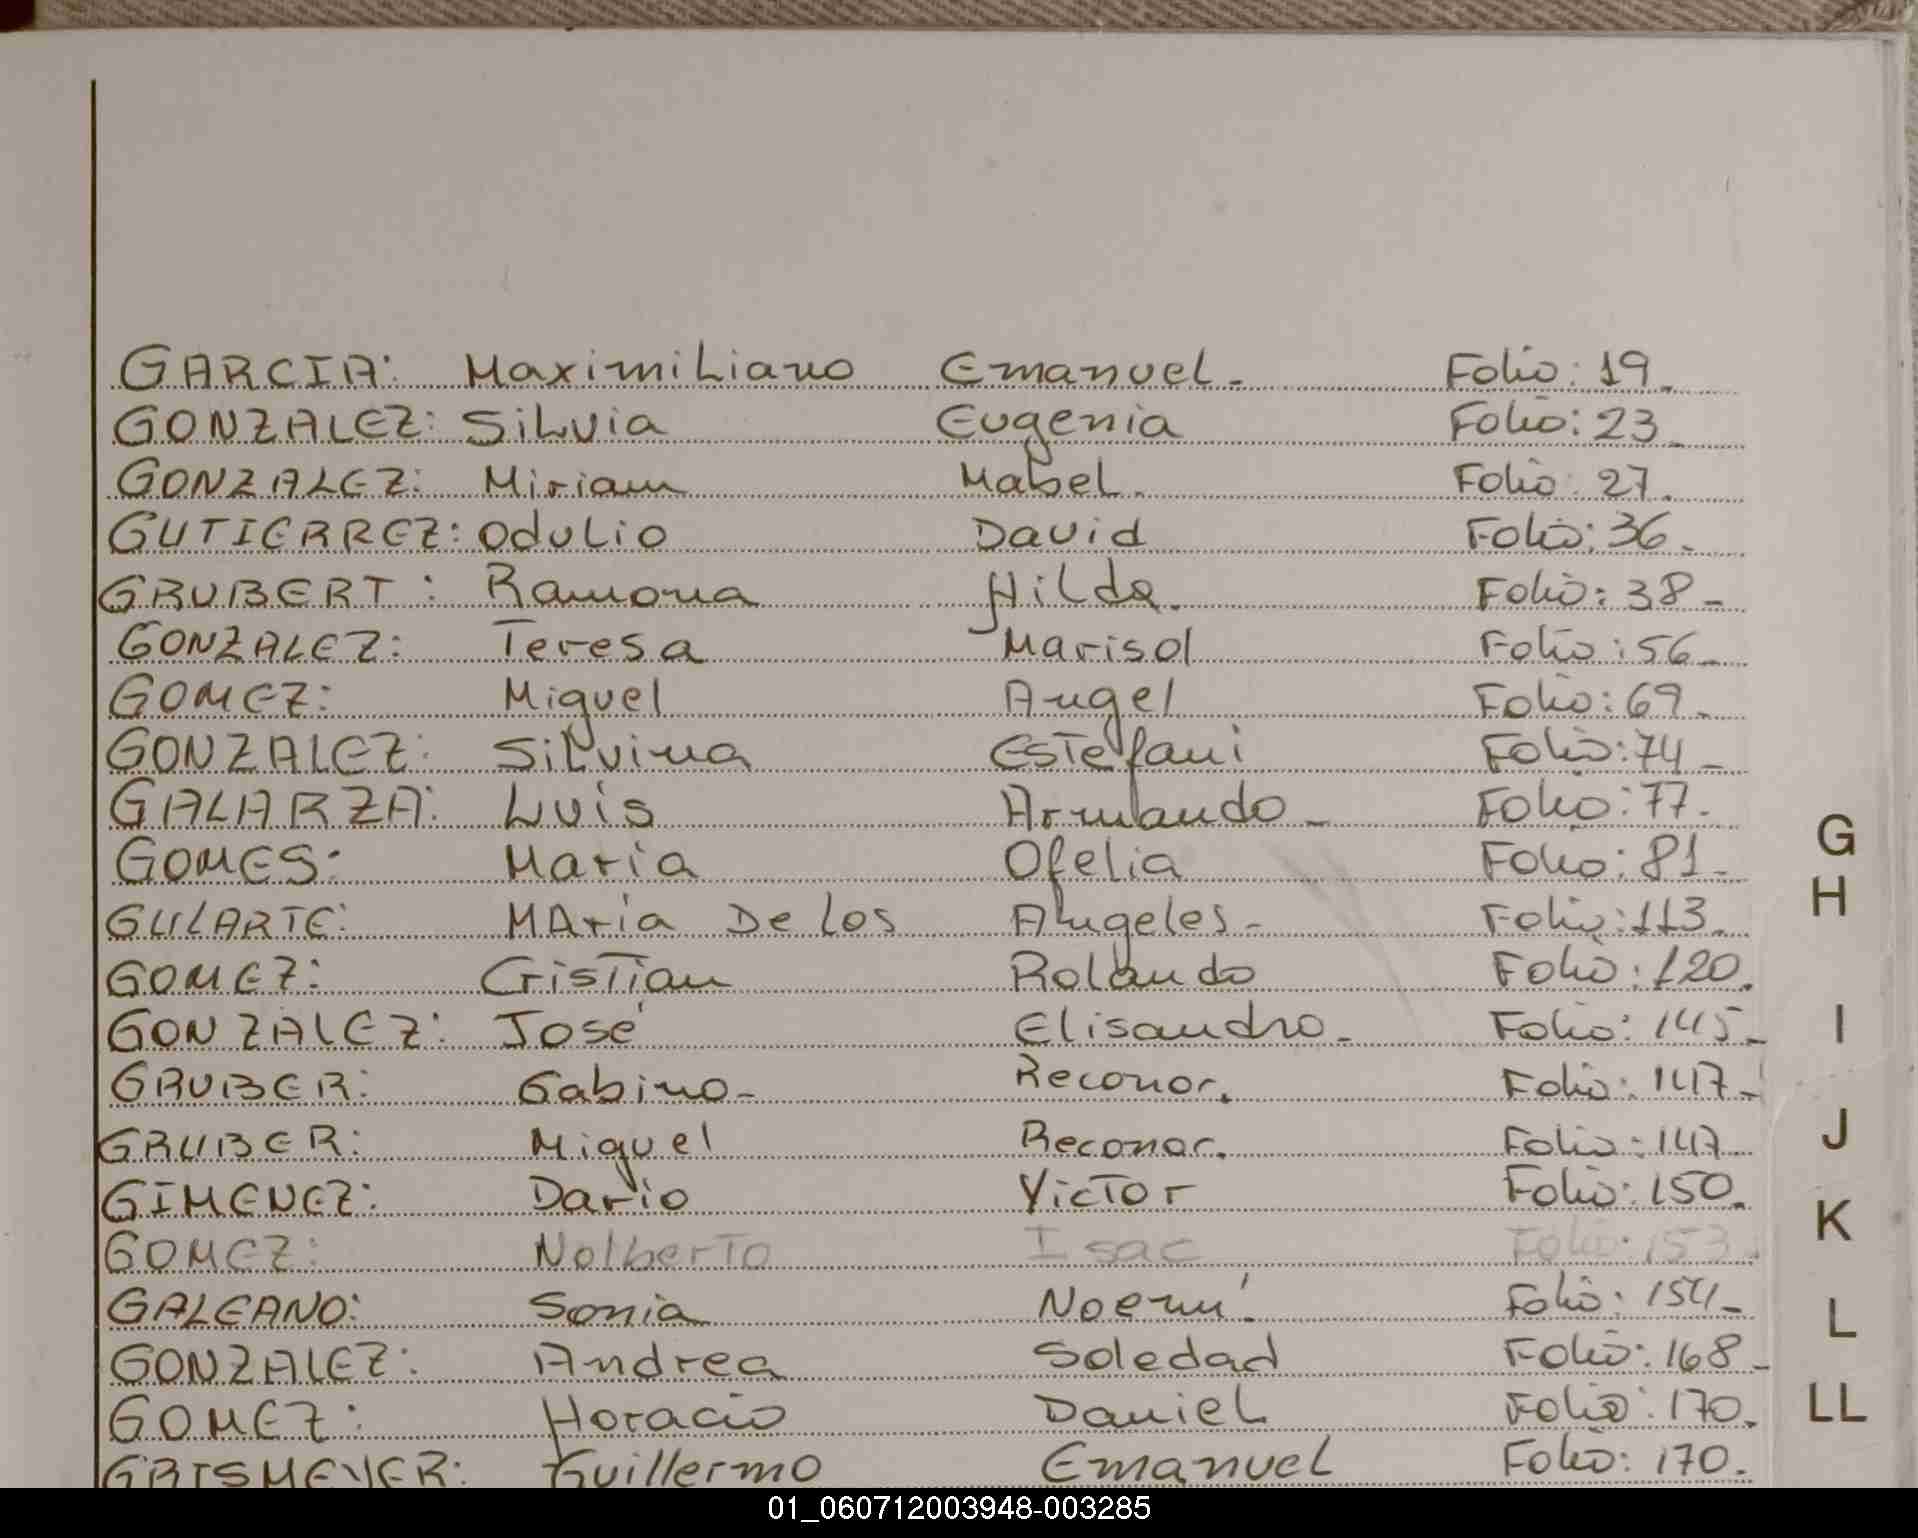 GARCIA: Maximiliano Emanuel. Folio: 19.
GONZALEZ: Silvia Eugenia Folio: 23.
GONZALEZ: Miriam Mabel. Folio: 27.
GUTIERREZ: Odulio David Folio: 36.
GRUBERT: Ramona Hilda. Folio: 38.
GONZALEZ: Teresa Marisol Folio: 56.
GOMEZ: Miguel Angel Folio: 69.
GONZALEZ: Silvina Estefani Folio: 74.
GALARZA: Luis Armando. Folio: 77.
GOMES: Maria Ofelia Folio: 81.
GULARTE: MAria De Los Angeles. Folio: 113.
GOMEZ: Cristian Rolando Folio: 120.
GONZALEZ: José Elisandro. Folio: 145.
GRUBER: Gabino. Reconor. Folio: 147.
GRUBER: Miguel Reconor. Folio: 147.
GIMENEZ: Dario Victor Folio: 150.
GOMEZ: Nolberto Isac Folio: 153.
GALEANO: Sonia Noemí. Folio: 154.
GONZALEZ: Andrea Soledad Folio: 168.
GOMEZ: Horacio Daniel Folio: 170.
GRISMEYER: Guillermo Emanuel Folio: 170.
G
H
I
J
K
L
LL
01_060712003948-003285